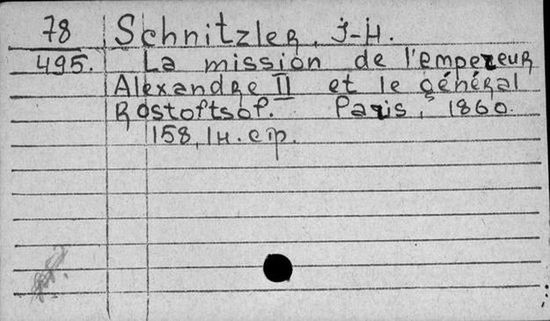 78 Schnitzler, J-H.
495. La mission de l'empereur
Alexandre II et le général
Rostoftsof. Paris, 1860.
158, 1н. стр.